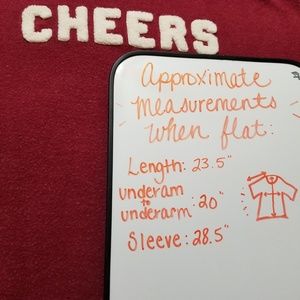 CHEERS
Approximate
measurements
when flat:
Length: 23.5"
underam
to
underarm: 20"
Sleeve: 28.5"